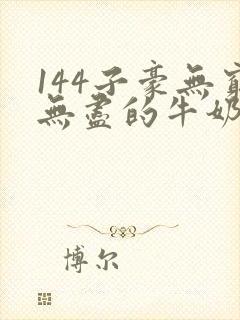 144子豪無窮
無盡的牛奶
博尔